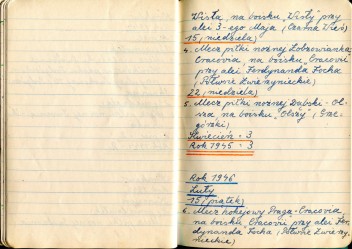 Wisła na boisku „Wisły” przy
alei 3-ego Maja (Czarna Wieś)
15, (niedziela)
4. Mecz piłki nożnej Łobzowianka-
Cracovia na boisku Cracovii
przy alei Ferdynanda Focha
(Półwsie Zwierzynieckie)
22, (niedziela)
5. Mecz piłki nożnej Dąbski - Ol-
sza na boisku „Olszy” (Grze-
górzki)
Kwiecień = 3
Rok 1945 = 3
Rok 1946
Luty
15, (piątek)
6. Mecz hokejowy Praga-Cracovia
na boisku Cracovii przy alei Fer-
dynanda Focha (Półwsie Zwierzy-
nieckie)